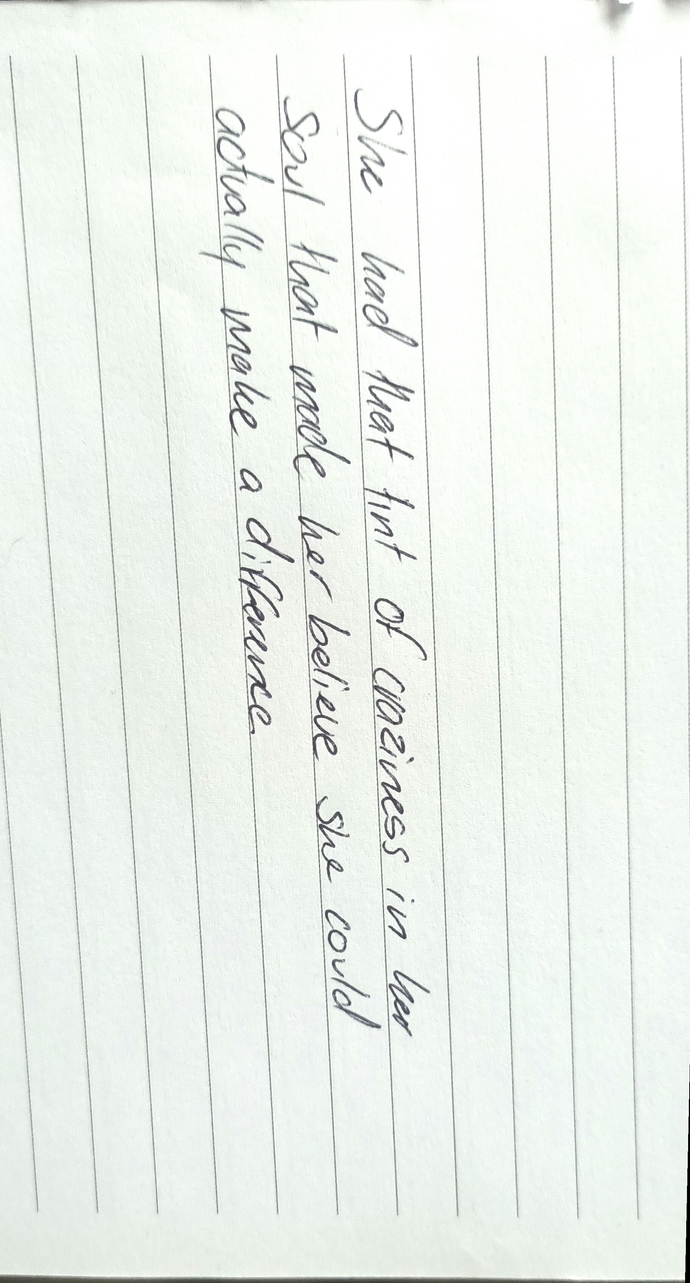 She had that tint of craziness in her
soul that made her believe she could
actually make a difference.